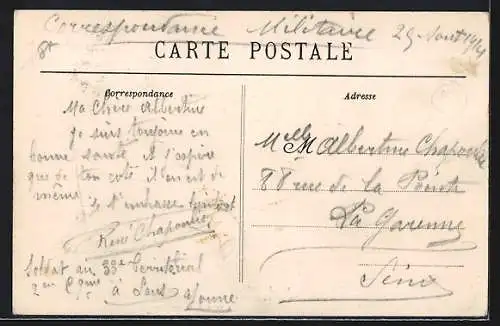 Correspondance Militaire 29 Aout 1914
CARTE POSTALE
Correspondance
Adresse
Ma Chere Albertine
Je suis toujours en
bonne santé et j'espère
que de ton coté il en est de
même
Je t'embrasse
René Chaponnie
Soldat au 33e Territorial
2em Cgnie à Sens Yonne
Melle Albertine Chaponnie
88 rue de la Pointe
La Garenne
Seine